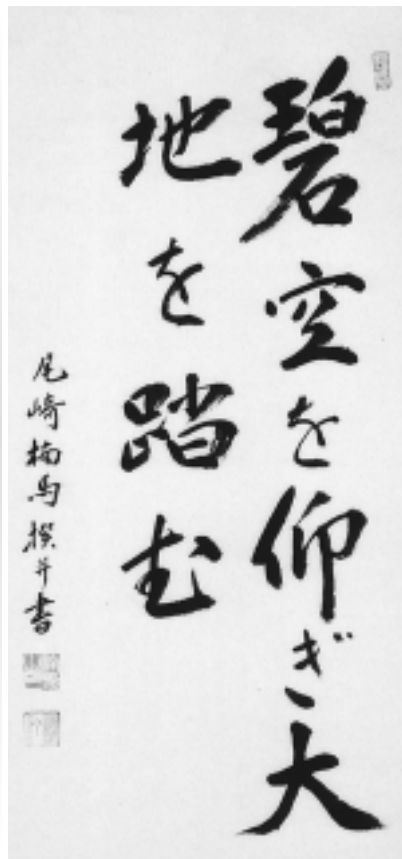 碧空を仰ぎ大
地を踏む
尾崎楠馬撰并書